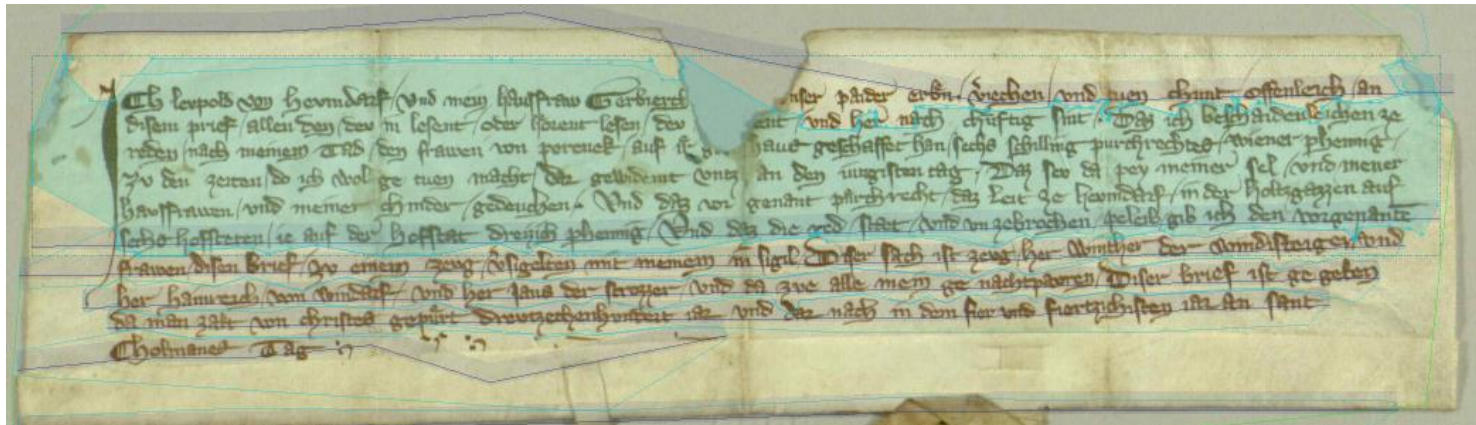 Ich levpold von hevndarf / vnd mein havsfraw Gerbierch vnser paider erbn / v̊iechen vnd tuen chunt offenleich / an
disem prief / allen den / dev in lesent / oder horent lesen / dev nach chuftig sint / Daz ich beschaidenleichen ze
reden / nach meinem Tad / den frawen von / auf ir haus geschaffet han / sechs schilling purchrechtes / wiener phennig /
zv den zeiten / do ich wol ge tuen macht / dar gewidemt vntz an den ivngisten tag / Daz sev da pey meiner sel / vnd meiner
havsfrawen / vnd meiner chinder / gedenchen / Vnd daz vor genant purchrecht / daz leit ze hevndarf / in der holtzgazzen auf
sechs hofsteten / ie auf der hofstat dreizich phennig / Vnd daz die red / stat / vnd vn zebrochen / peleib / gib ich den vorgenanten
frawen / disen brief / zv einem zevg / v̊sigelten mit meinem in sigil / Diser sach ist zevg / her der vnd
her hainreich / von / vnd her Jans der / vnd da zve alle mein ge nachtpavren / Diser brief ist ge geben
da man zalt von christes gepurt Drevtzechenhundert iar vnd dar nach in dem fier vnd fiertzichisten iar an sant
Cholmanes Tag